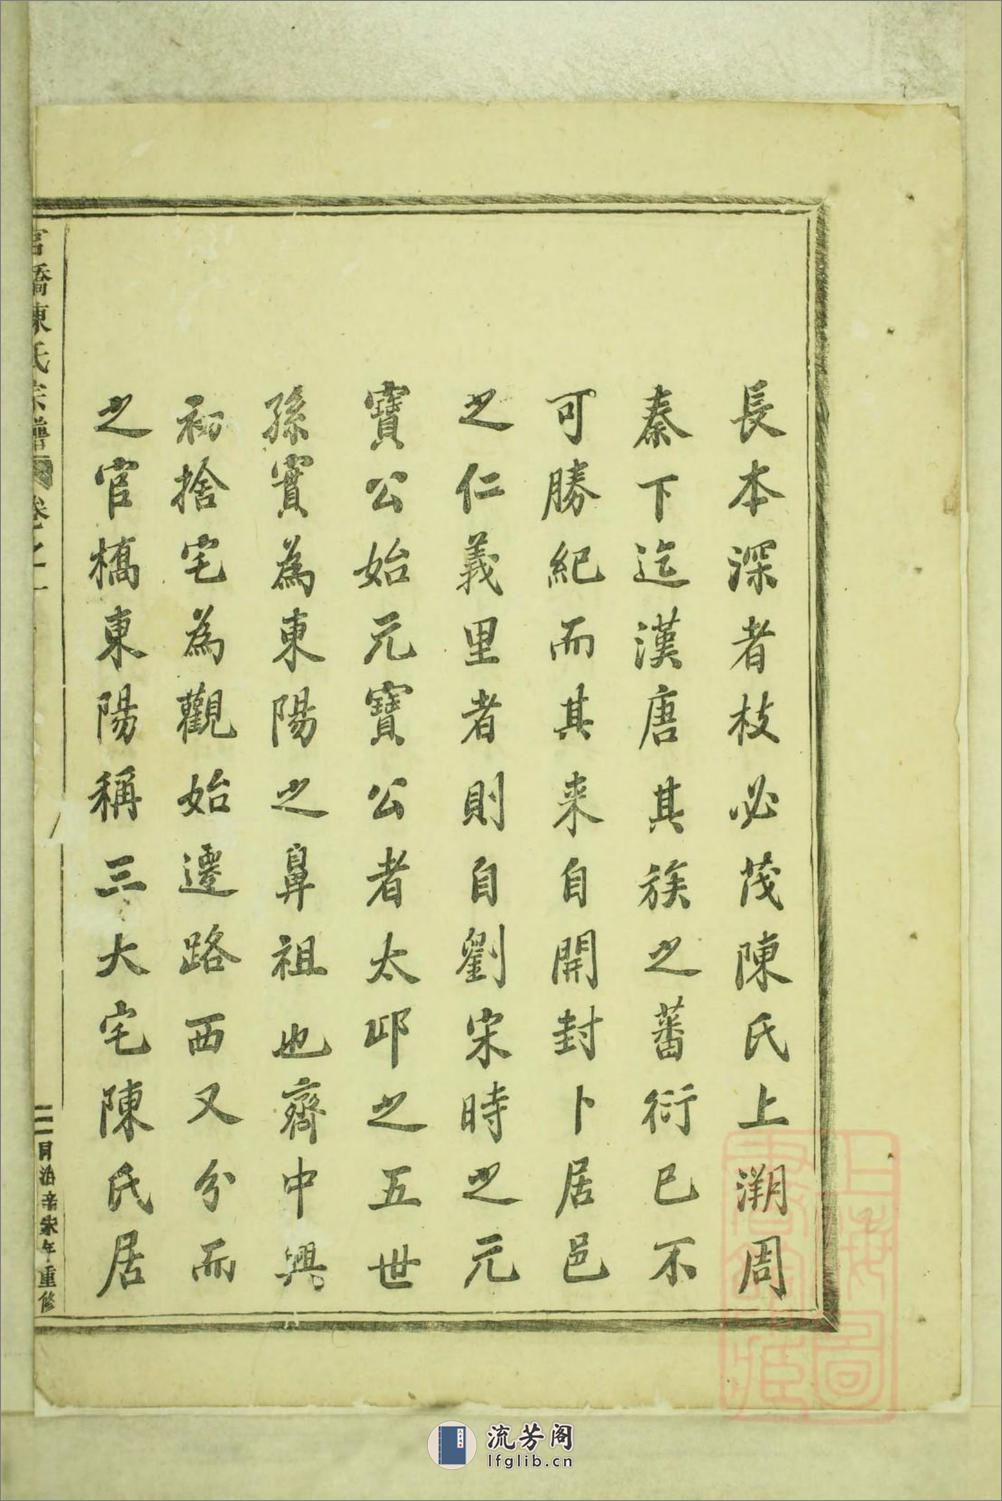 長本深者枝必茂陳氏上溯周
秦下迄漢唐其族之蕃衍已不
可勝紀而其来自開封卜居邑
之仁義里者則自劉宋時之元
寶公始元寶公者太邱之五世
孫實為東陽之鼻祖也齊中興
初捨宅為觀始遷路西又分而
之官橋東陽稱三大宅陳氏居
官橋陳氏宗譜 卷之一
同治辛未年重修
上海圖書館藏
流芳阁
lfglib.cn